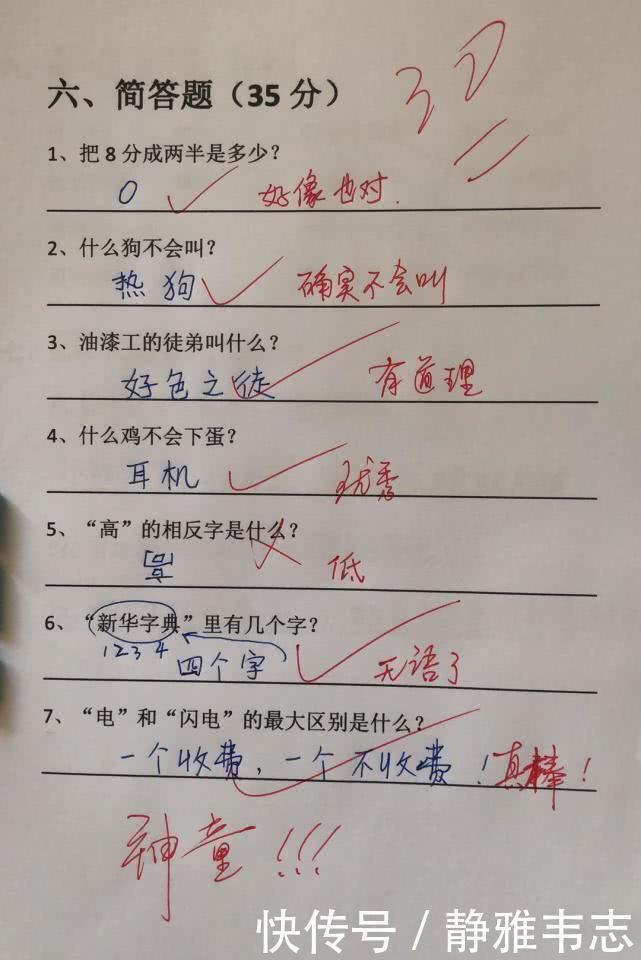 30
六、简答题（35 分）
1、把 8 分成两半是多少?
0 好像也对.
2、什么狗不会叫?
热狗 确实不会叫
3、油漆工的徒弟叫什么?
好色之徒 有道理
4、什么鸡不会下蛋?
耳机 优秀
5、“高”的相反字是什么?
低
6、“新华字典”里有几个字?
1 2 3 4 四个字 无语了
7、“电”和“闪电”的最大区别是什么?
一个收费，一个不收费! 真棒!
神童!!!
快传号 / 静雅韦志